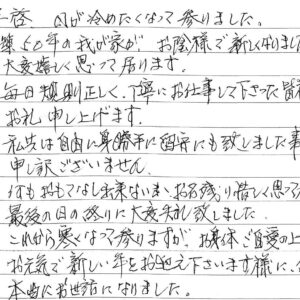 拝啓 風が冷めたくなって参りました。
築50年の我が家が、お陰様で新しくなりまし
大変嬉しく思って居ります。
毎日規則正しく、丁寧にお仕事して下さった皆
お礼申し上げます。
私共は自由に身勝手に留守にも致しました事
申し訳ございません。
何もおもてなし出来ないまゝお名残り惜しく思って
最後の日の終りに大変失礼致しました。
これから寒くなって参りますが、お身体ご自愛の上
お元気で新しい年をお迎え下さいます様に、
本当にお世話になりました。